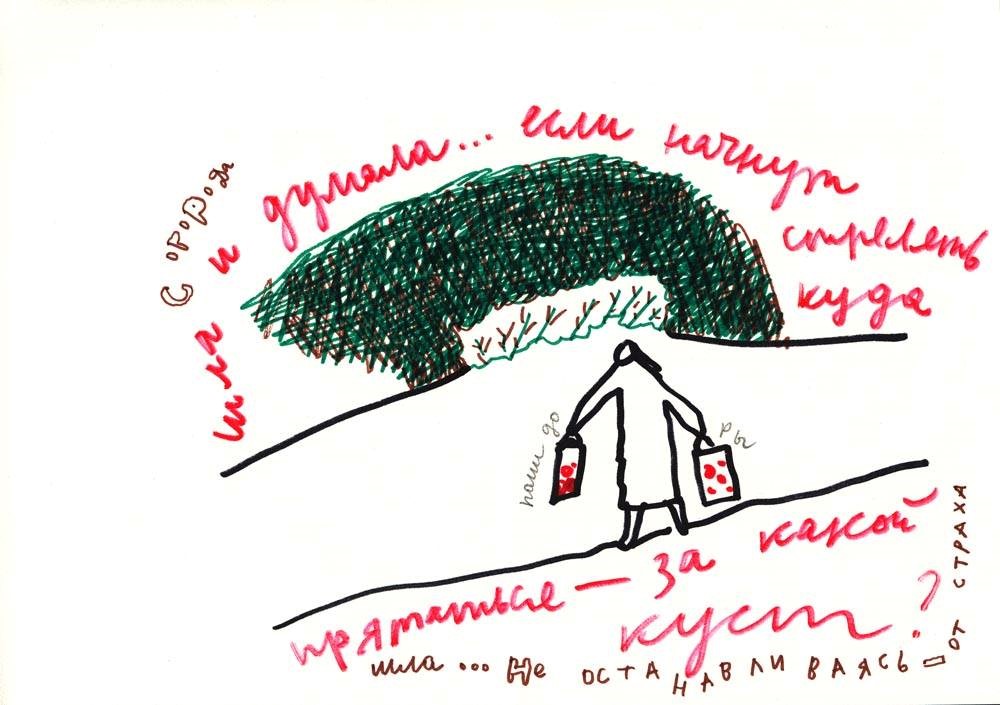 шла и думала... если начнут
стрелять
куда
прятаться — за какой
куст?
наши до
ры
шла ... Не ОСТАНАВЛИВАЯСЬ — ОТ СТРАХА